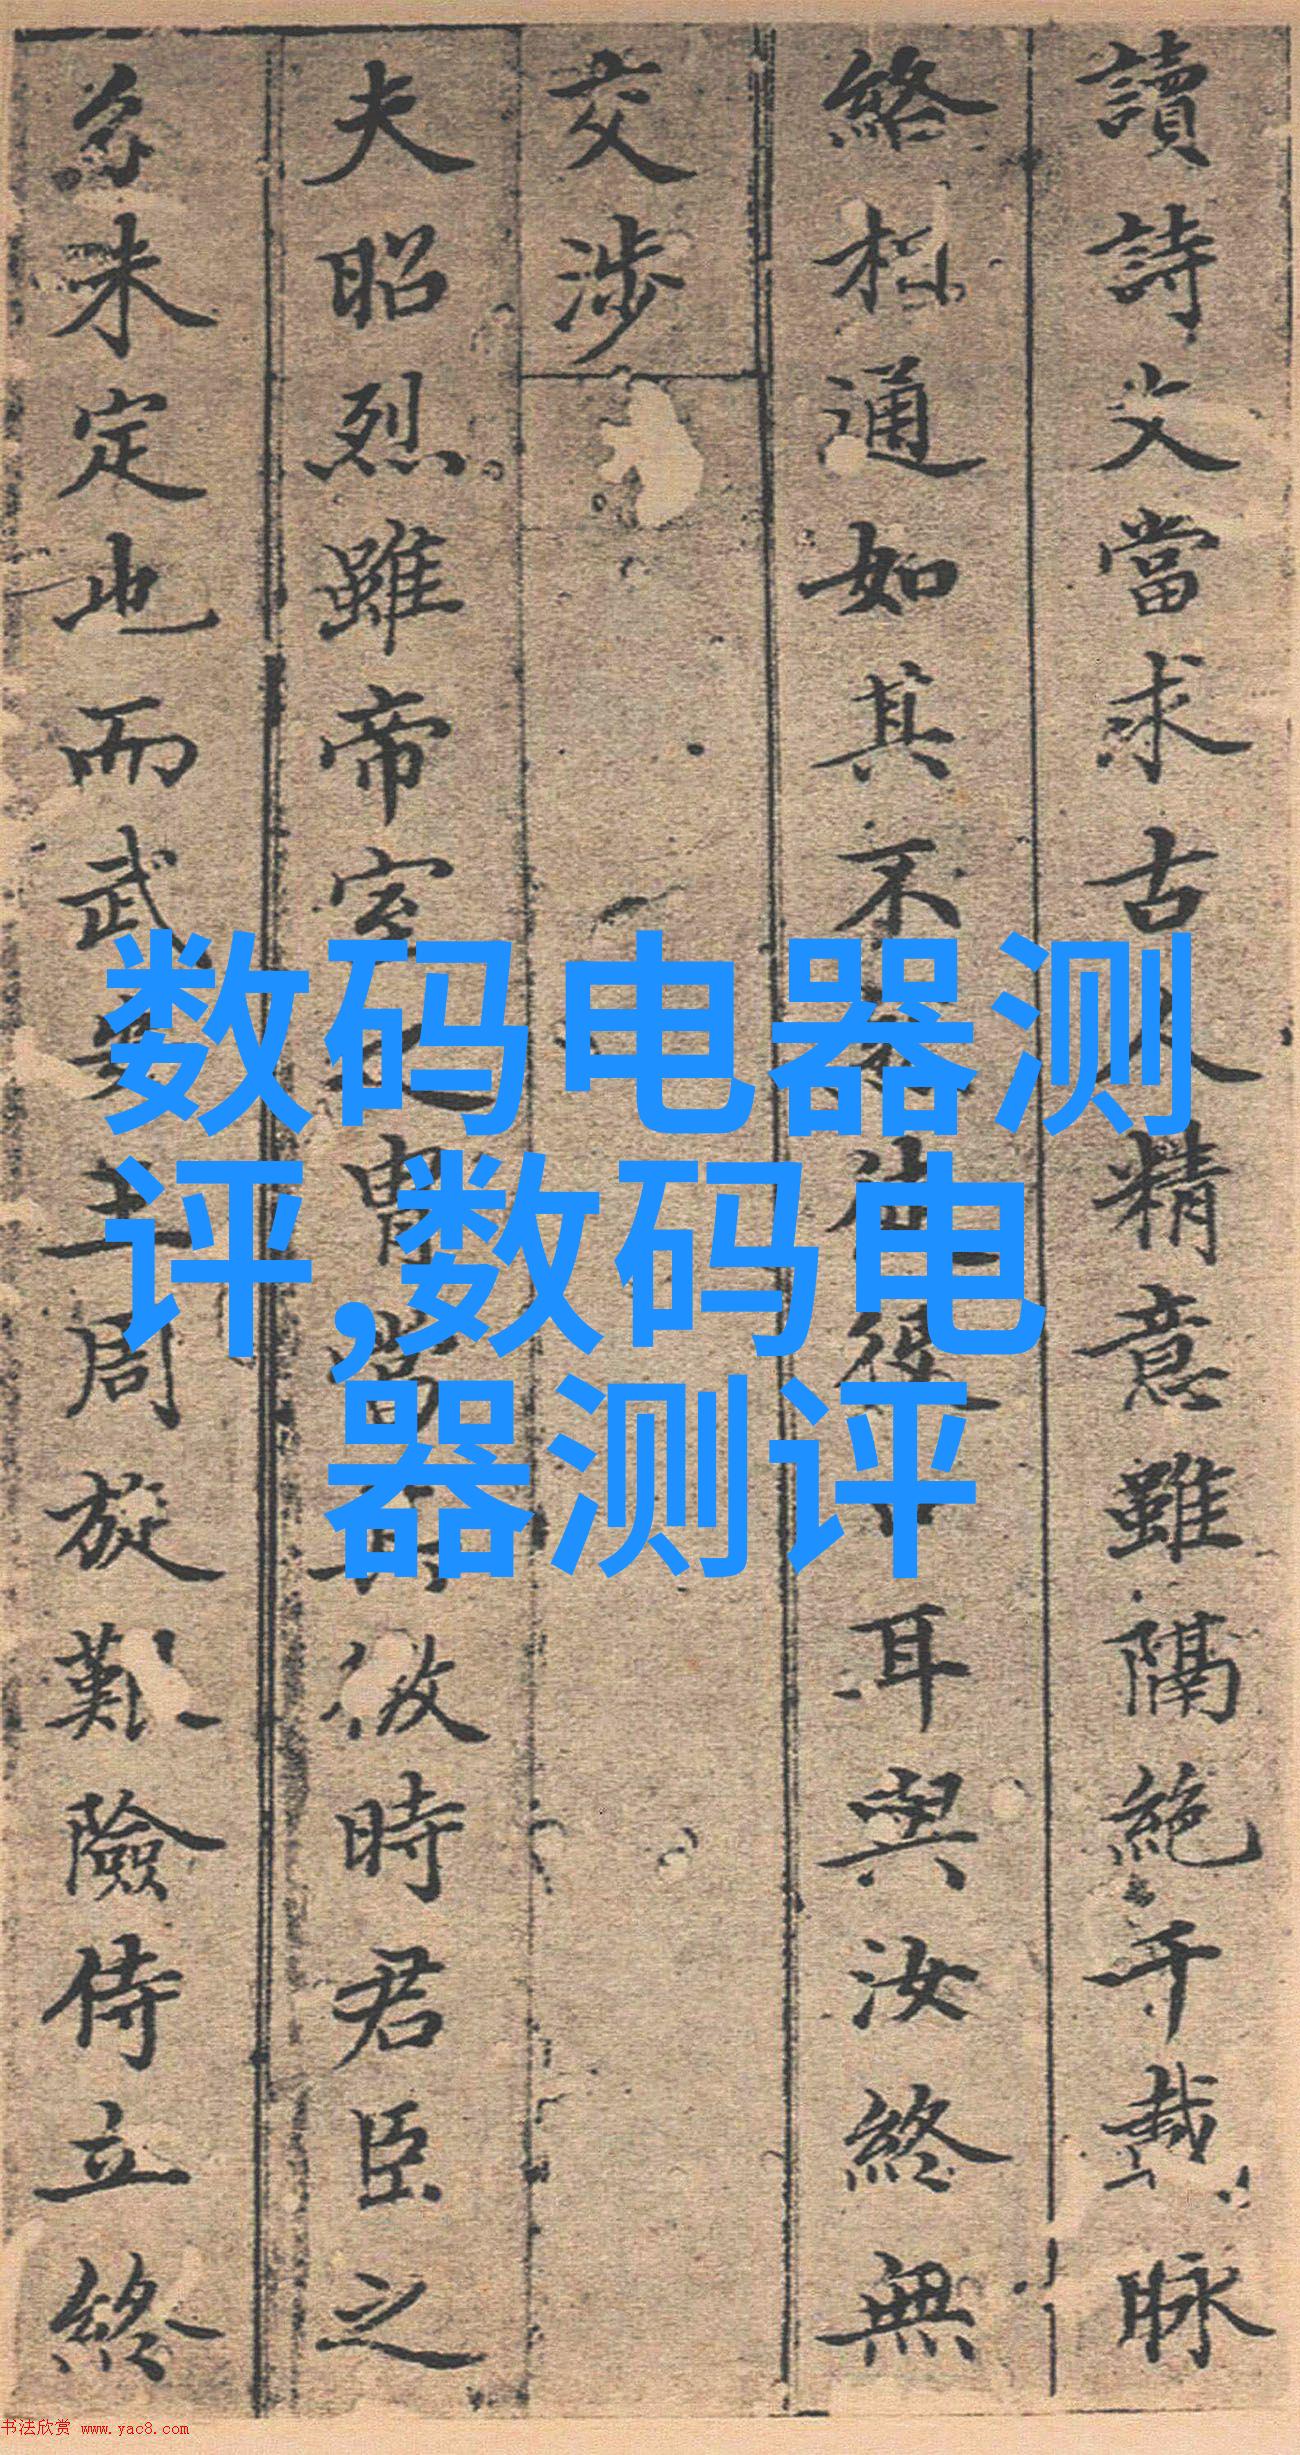 讀詩文當求古人精意雖隔絶千載脉
絡相通如其不役耳與汝終無
交涉
夫昭烈雖帝室之胄當微時君臣之
分未定也而武安王周旋艱險侍立終
数码电器测
评,数码电
器测评
书法欣赏 www.yac8.com